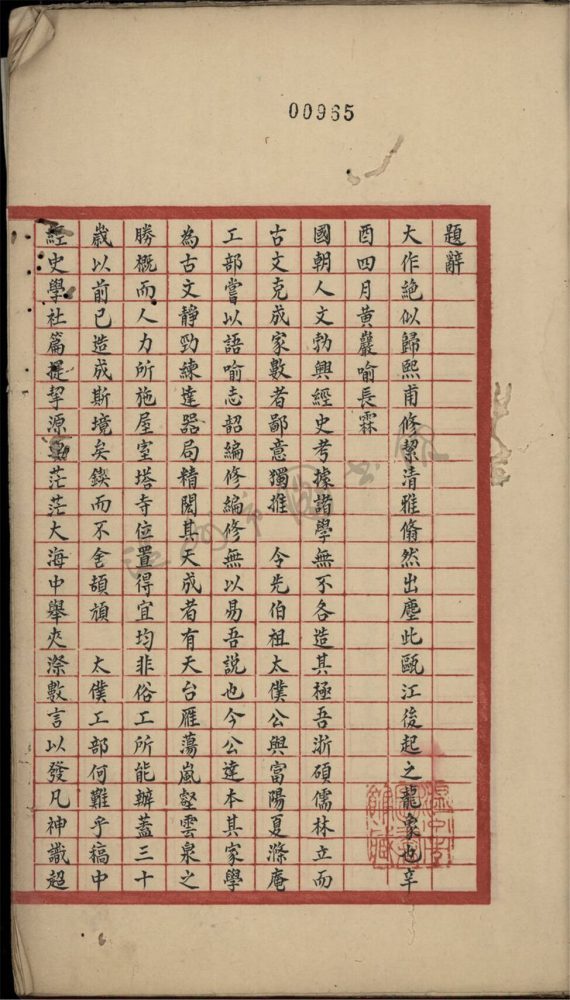 00965
題辭
大作絶似歸熙甫修潔清雅翛然出塵此甌江後起之龍象也辛
酉四月黃巖喻長霖
國朝人文勃興經史考據諸學無不各造其極吾浙碩儒林立而
古文克成家數者鄙意獨推　令先伯祖太僕公與富陽夏滌庵
工部嘗以語喻志韶編修編修無以易吾說也今公達本其家學
為古文靜勁練達器局精閎其天成者有天台雁蕩嵐壑雲泉之
勝概而人力所施屋室塔寺位置得宜均非俗工所能辦蓋三十
歲以前已造成斯境矣鍥而不舍頡頏　太僕工部何難乎稿中
經史學社篇提挈源茫茫大海中舉夾漈數言以發凡神識超
溫州市圖書館藏